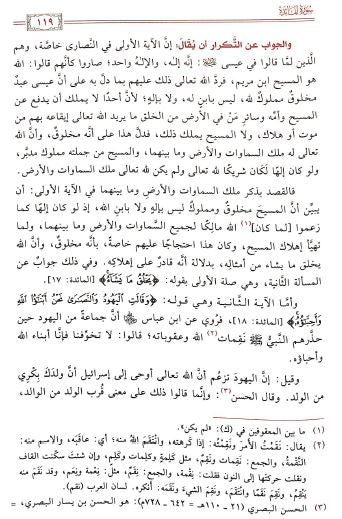 سورة المائدة
١١٩
والجواب عن التَّكرار أن يُقَالُ: إنَّ الآية الأولى في النَّصارى خاصَّة، وهم
الَّذين لمَّا قالوا في عيسى ﷺ: إنَّه إله، والإلٰهُ واحد؛ صاروا كأنَّهم قالوا: الله
هو المسيح ابن مريم. فردَّ الله تعالى ذلك عليهم بما دلَّ به على أنَّ عيسى عبدٌ
مخلوقٌ مملوكٌ لله، ليس بابنٍ له، ولا بإلهٍ؛ لأنَّ أحدًا لا يملك أن يدفع عن
المسيح وأمِّه وسائرِ مَنْ في الأرض من الخلق ما يريد الله تعالى إيقاعه بهم من
موت أو هلاك، ولا المسيح يملك ذلك، فدلَّ هذا على أنَّه مخلوق، وأنَّ الله
تعالى له ملك السماوات والأرض وما بينهما، والمسيح من جملته مملوك مدبَّر،
ولو كان إلهًا لَكَان شريكًا لله تعالى ولم يكن لله تعالى ملك السماوات والأرض.
فالقصد بذكر ملك السماوات والأرض وما بينهما في الآية الأولى: أن
يبيِّن أنَّ المسيحَ مخلوقٌ ومملوكٌ ليس بإلهٍ ولا بابنٍ لله، إذ لو كان إلهًا كما
زعموا [لما كان](١) الله مالكًا لجميع السَّماوات والأرض وما بينهما، ولما
تهيَّأ إهلاك المسيح، وكان هذا احتجاجًا عليهم خاصةً، بأنَّه مخلوق، وأنَّ الله
يخلق ما يشاء من أمثاله، بدلالة أنَّه قادرٌ على إهلاكه. وفي ذلك جوابٌ عن
المسألة الثَّانية، وهي صلة الأولى بقوله: ﴿يَخْلُقُ مَا يَشَاءُ﴾ [المائدة: ١٧].
وأمَّا الآية الثَّانية وهي قوله: ﴿وَقَالَتِ الْيَهُودُ وَالنَّصَارَىٰ نَحْنُ أَبْنَاؤُا اللَّهِ
وَأَحِبَّاؤُهُ﴾ [المائدة: ١٨]، فرُوي عن ابن عباس ﷺ أنَّ جماعةً من اليهود حين
حذَّرهم النَّبيُّ ﷺ نَقِمات(٢) الله وعقوباته؛ قالوا: لا تخوِّفنا فإنَّا أبناء الله
وأحباؤه.
وقيل: إنَّ اليهودَ تزعُم أنَّ الله تعالى أوحى إلى إسرائيل أنَّ ولدَكَ بِكْرِي
من الولد. وقال الحسن(٣): وإنَّما قالوا ذلك على معنى قُرب الولد من الوالد،
(١) ما بين المعقوفين في (ك): «لم يكن».
(٢) يقال: نَقَمْتُ الأَمرَ ونَقِمْتُه: إذا كَرِهته، وانْتَقَمَ اللهُ منه؛ أي: عاقَبَه، والاسم منه:
النِّقْمَةُ، والجمع: نَقِمات ونَقِمٌ، مثل: كَلِمةٍ وكلمات وكَلِمٍ، وإن شئتَ سكنت القاف
ونقلت حركتها إلى النون فقلت: نِقْمة، والجمع: نِقَمٌ، مثلُ: نِعْمة ونِعَم، وقد نَقَمَ منه
يَنْقِمُ، ونَقِمَ، وانْتَقَمَ، ونَقِمَ الشيءَ ونَقَمَه: أَنكره. لسان العرب (نقم).
(٣) حسن البصري (٢١ - ١١٠هـ = ٦٤٢ - ٧٢٨م): هو الحسن بن يسار البصري، =